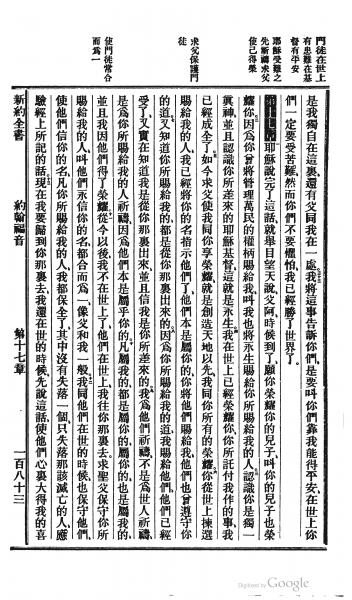 門徒在世上
有患難在基
督有平安
耶穌受難之
先新禱求父
使已得榮
求父保護門
徒
使門徒常合
而爲一
是我獨自在這裏、還有父同我在一處、我將這事告訴你們、是要叫你們靠我能得平安、在世上你
們一定要受苦難、然而你們不要懼怕、我已經勝了世界了。
第十七章 耶穌說完了這話、就舉目望天說、父阿、時候到了、願你榮耀你的兒子、叫你的兒子也榮
耀你、因爲你曾將管理萬民的權柄賜給我、叫我也將永生賜給你所賜給我的人、認識你是獨一
眞神、並且認識你所差來的耶穌基督、這就是永生、我在世上已經榮耀你、你所託付我作的事、我
已經成全了、如今求父使我同你享榮耀、就是創造天地以先、我同你所有的榮耀、你從世上揀選
賜給我的人、我已經將你的名指示他們了、他們本是屬你的、你將他們賜給我、他們也曾遵守你
的道、又知道你所賜給我的、都是從你那裏出來的、因爲你所賜給我的道、我賜給他們、他們已經
受了、又實在知道我是從你那裏出來的、並且信我是你所差來的、我爲他們祈禱、不是爲世人祈禱、
是爲你所賜給我的人祈禱、因爲他們本是屬乎你的、凡屬我的、都是屬你的、屬你的、也是屬我的、
並且我因他們得了榮耀、從今以後、我不在世上了、他們在世上、我往你那裏去、求聖父保守你所
賜給我的人、叫他們永信你的名、都合而爲一、像父和我一般、我同他們在世的時候、也保守他們、
使他們信你的名、凡你所賜給我的人、我都保全了、其中沒有失落一個、只失落那該滅亡的人、應
驗經上所記的話、現在我要歸到你那裏去、我還在世的時候、先說這話、使他們心裏大得我的喜
新約全書
約翰福音
第十七章
一百八十三
Digitized by Google